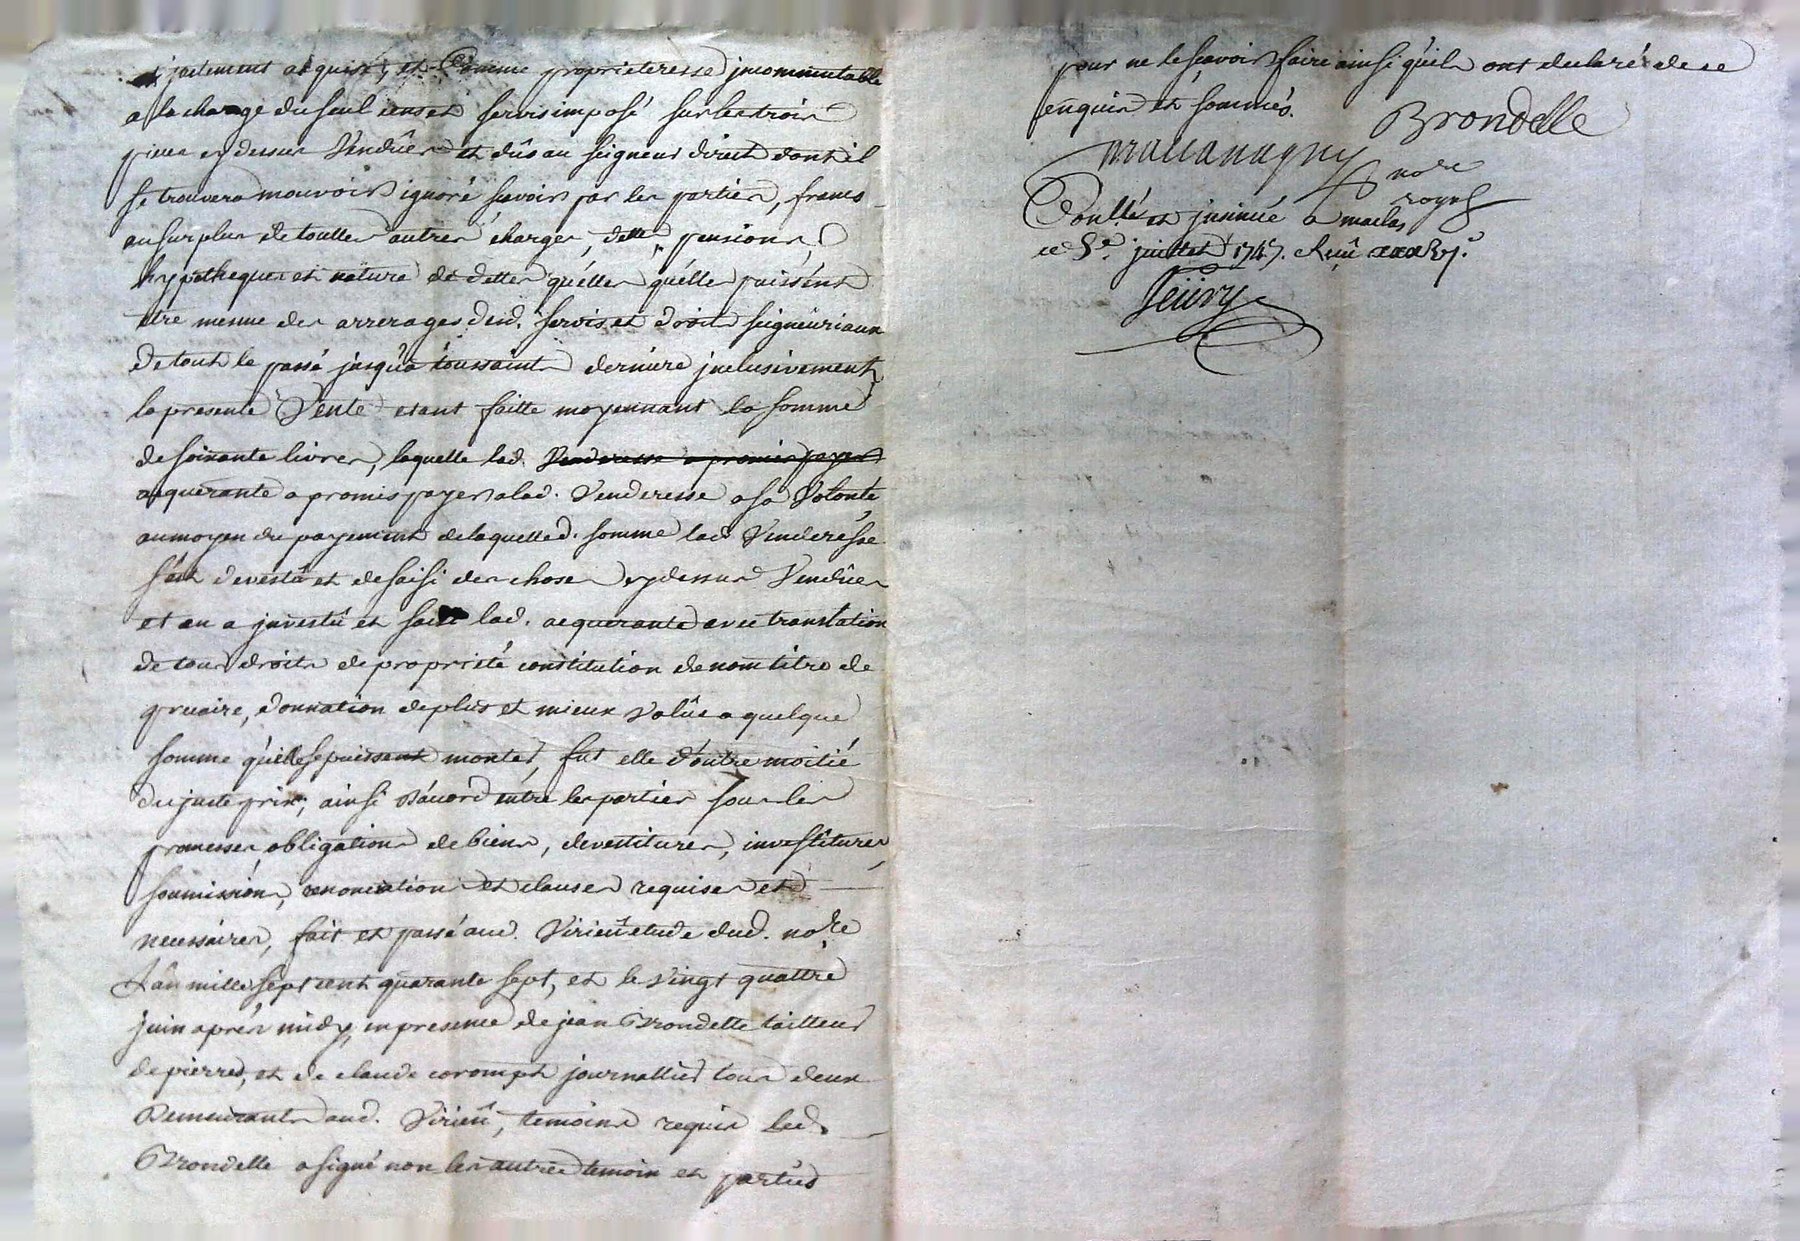 justement acquise, et comme proprieteresse jncommutable
a la charge du seul cens et servis imposé sur les trois
pieces cy dessus Vendûes et dûs au seigneur direct dont il
se trouvera mouvoir ignoré scavoir par les parties, francs
au surplus de touttes autres charges, dettes, pensions,
hypotheques et nature de dettes quélles quélles puissént
etre mesme des arrerages desd. servis et droits seigneuriaux
de tout le passé jusqu'a toussaints derniere jnclusivement
la presente Vente etant faitte moyennant la somme
de soixante livres, laquelle lad. Venderesse a promis payer
acquerante a promis payer a lad. Venderesse a sa Volonté
au moyen du payement de laquelle d. somme lad Venderesse
s'est devestû et desaisi des choses cy dessus Vendûes
et en a jnvestû et saisi lad. acquerante avec translation
de tous droits de proprieté constitution de nom titre de
precaire, donnation de plus et mieux Valûe a quelque
somme qu'elles puissent monter, fut elle d'outre moitié
du juste prix; ainsi d'acord entre les parties sous les
promesses, obligations de biens, devestitures, investitures
soumission, renonciation et clauses requises et
necessaires, fait et passé aud. Virieû etude dud. no.re
L'an mille sept cent quarante sept, et le vingt quattre
juin aprés midy, en presence de jean Brondelle tailleur
de pierres, et de claude corompt journallier tous deux
demeurants aud. Virieû, temoins requis led.
Brondelle a signé non les autres temoin et parties
pour ne le sçavoir faire ainsi qu'ils ont declaré de ce
enquis et sommés.
Brondelle
no.re
royal
Conllé et jnsinué a maclas
ce 5.e juillet 1747. Reçû